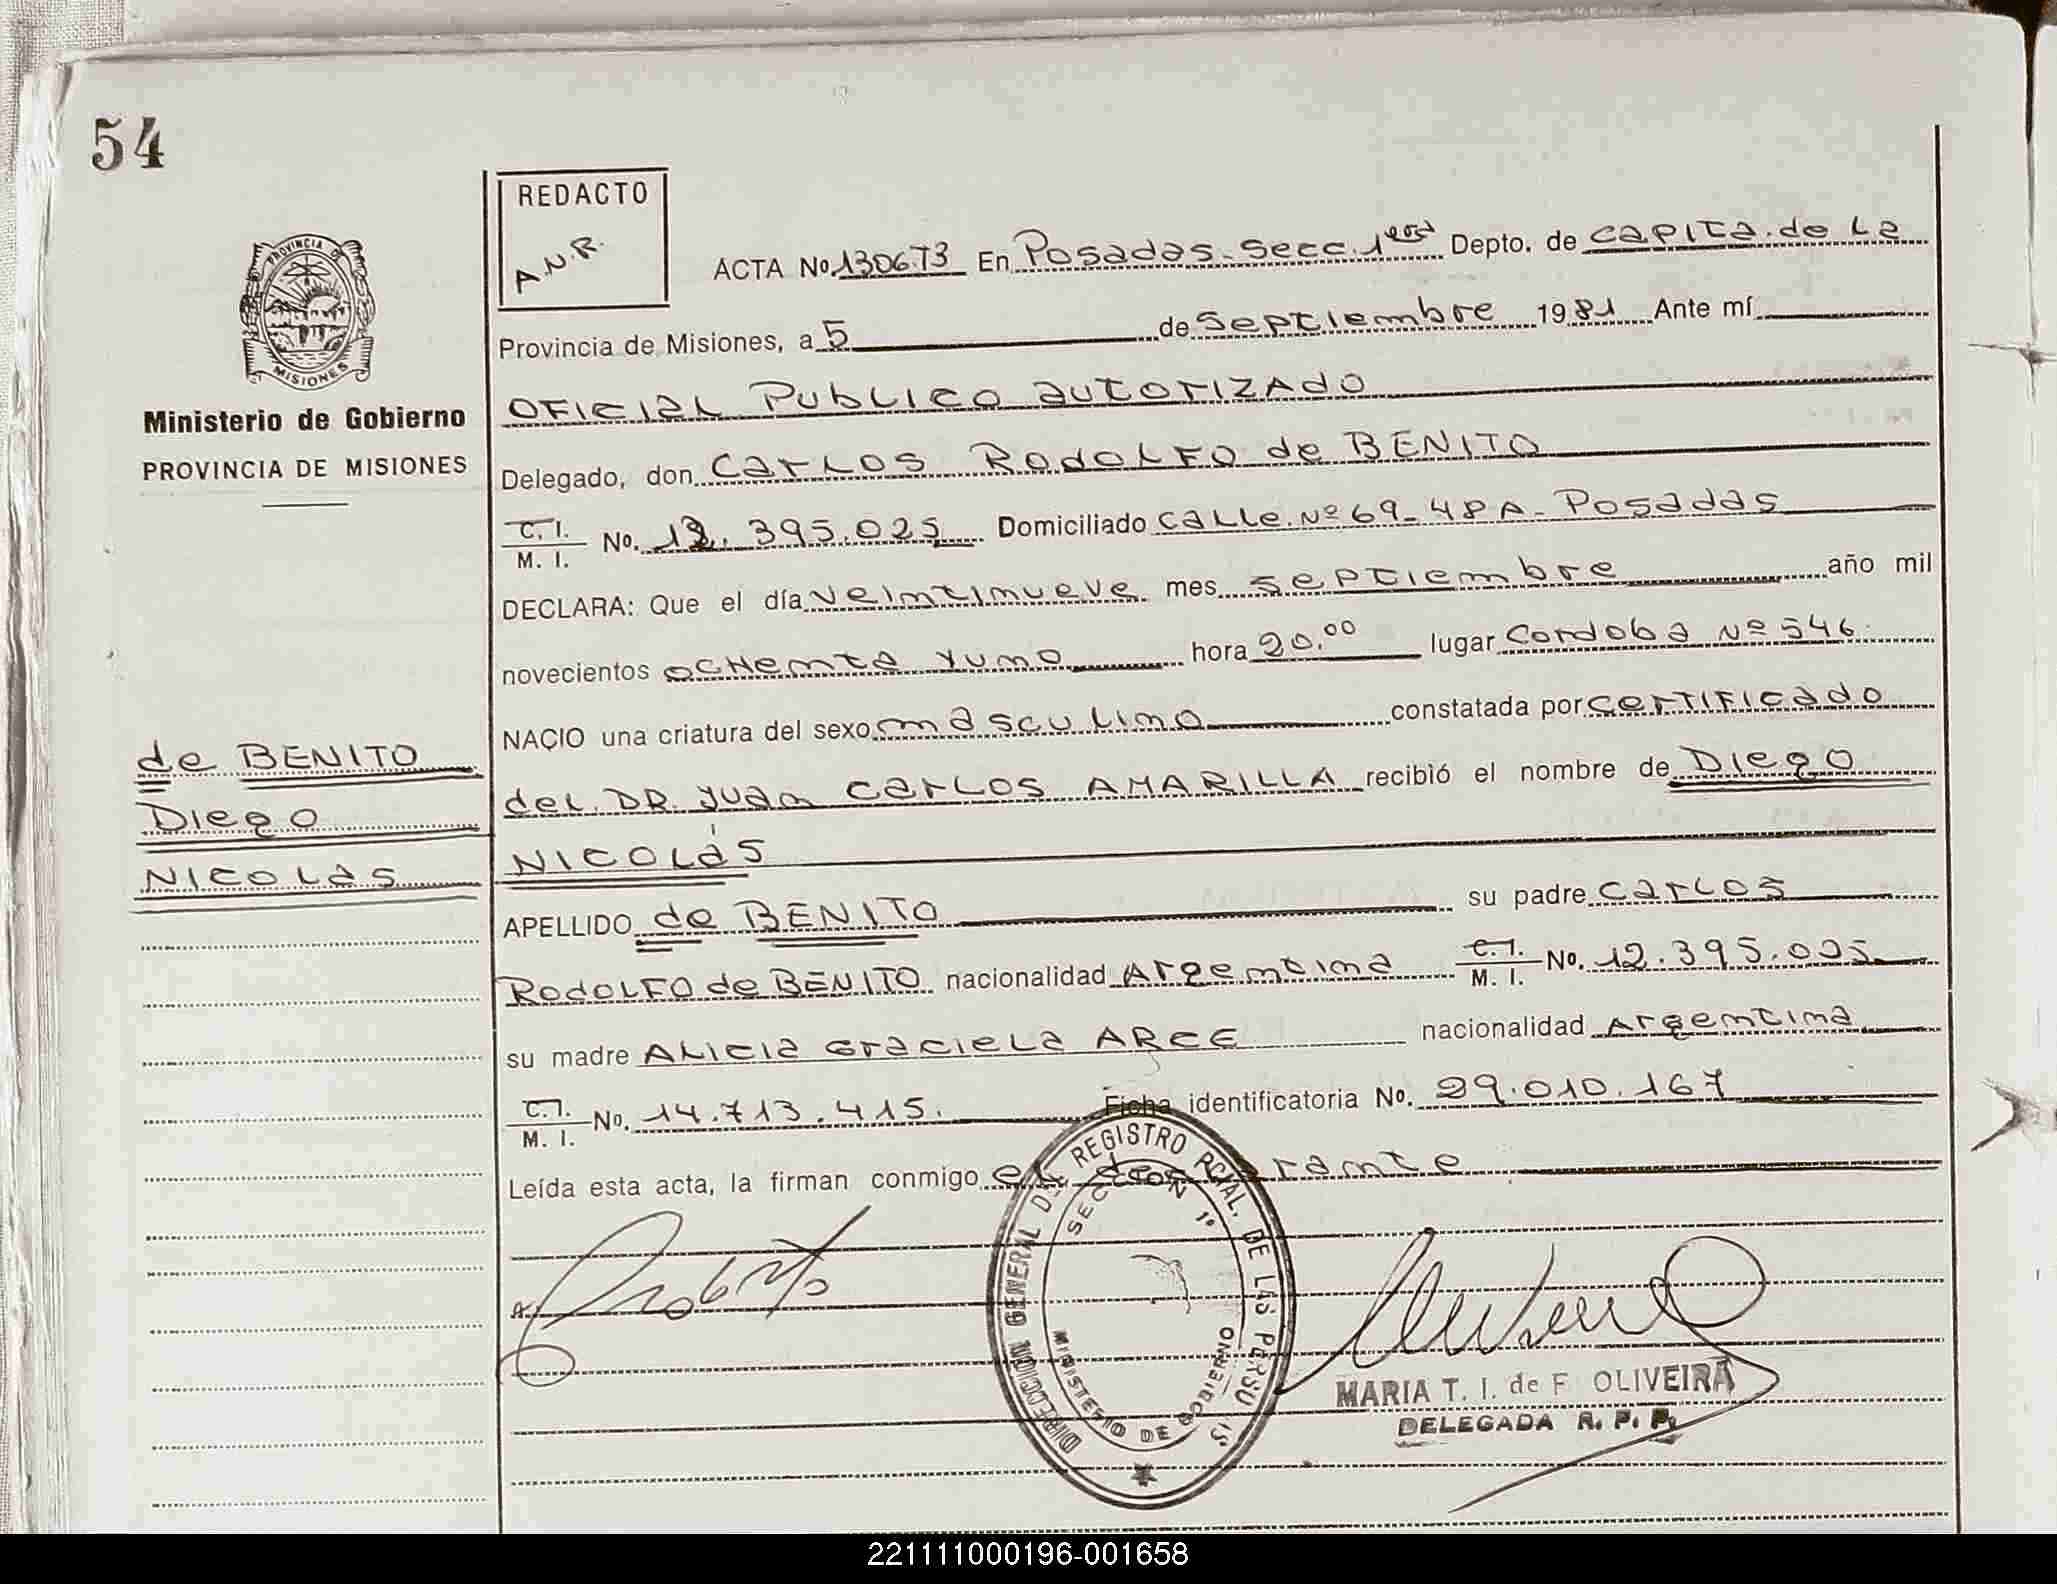 54
REDACTO
A.N.R.
ACTA No. 1306T3 En Posadas - Secc. 1era Depto. de Capita. de La
Provincia de Misiones, a 5 de Septiembre 1981 Ante mí
Oficial Publico autorizado
Delegado, don Carlos Rodolfo de BENITO
C. I.
M. I. No. 12.395.025 Domiciliado Calle Nº 69 - 48 A - Posadas
DECLARA: Que el día veintinueve mes septiembre año mil
novecientos ochenta y uno hora 20.00 lugar Cordoba Nº 546
NACIO una criatura del sexo masculino constatada por certificado
del DR. Juan Carlos AMARILLA recibió el nombre de Diego
Nicolás
APELLIDO de BENITO su padre Carlos
Rodolfo de BENITO nacionalidad Argentina C. I.
M. I. No. 12.395.025
su madre Alicia Graciela ARCE nacionalidad Argentina
C. I.
M. I. No. 14.713.415. Ficha identificatoria No. 29.010.167
Leída esta acta, la firman conmigo el
PROVINCIA DE
MISIONES
Ministerio de Gobierno
PROVINCIA DE MISIONES
de BENITO
Diego
Nicolas
DIRECCION GENERAL DEL REGISTRO PCIAL. DE LAS PERSONAS
SECCION 1º
MINISTERIO DE GOBIERNO
MARIA T. I. de F. OLIVEIRA
DELEGADA R. P. P.
221111000196-001658